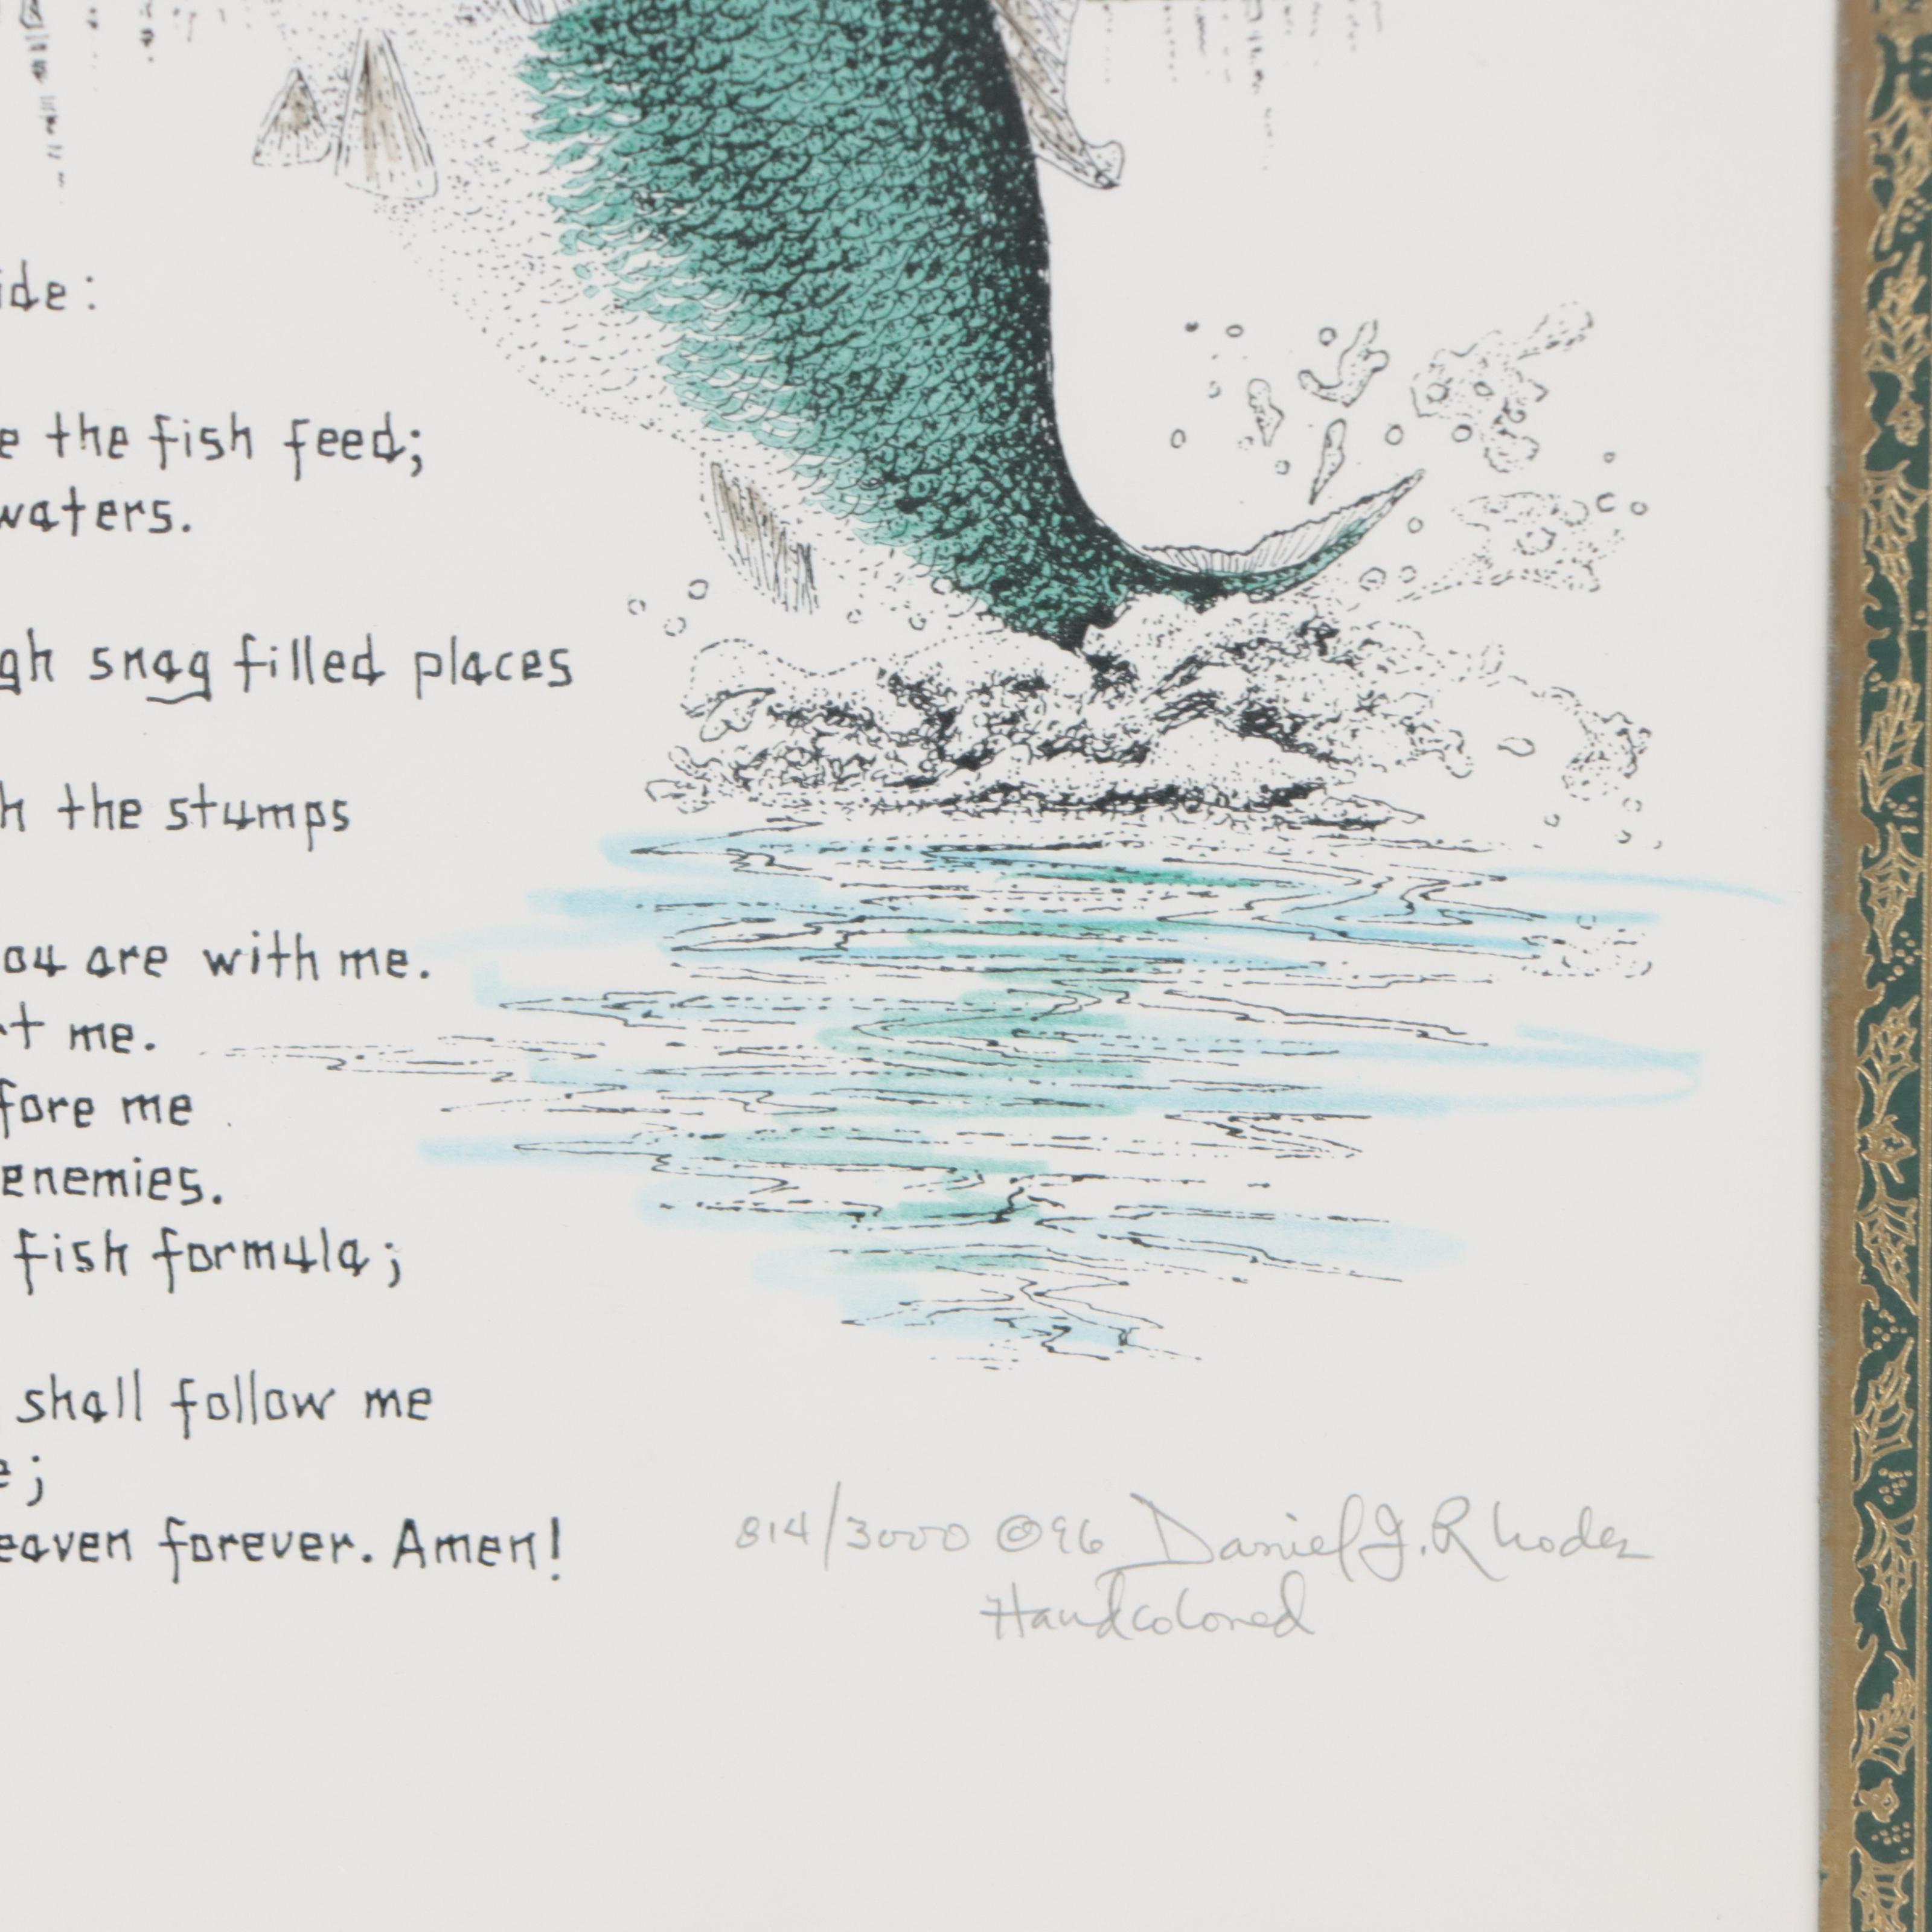 ide:
e the fish feed;
waters.
gh snag filled places
h the stumps
ou are with me.
rt me.
fore me
enemies.
fish formula;
shall follow me
e;
eaven forever. Amen!
814/3000 ©96 Daniel J. Rhodes
Handcolored